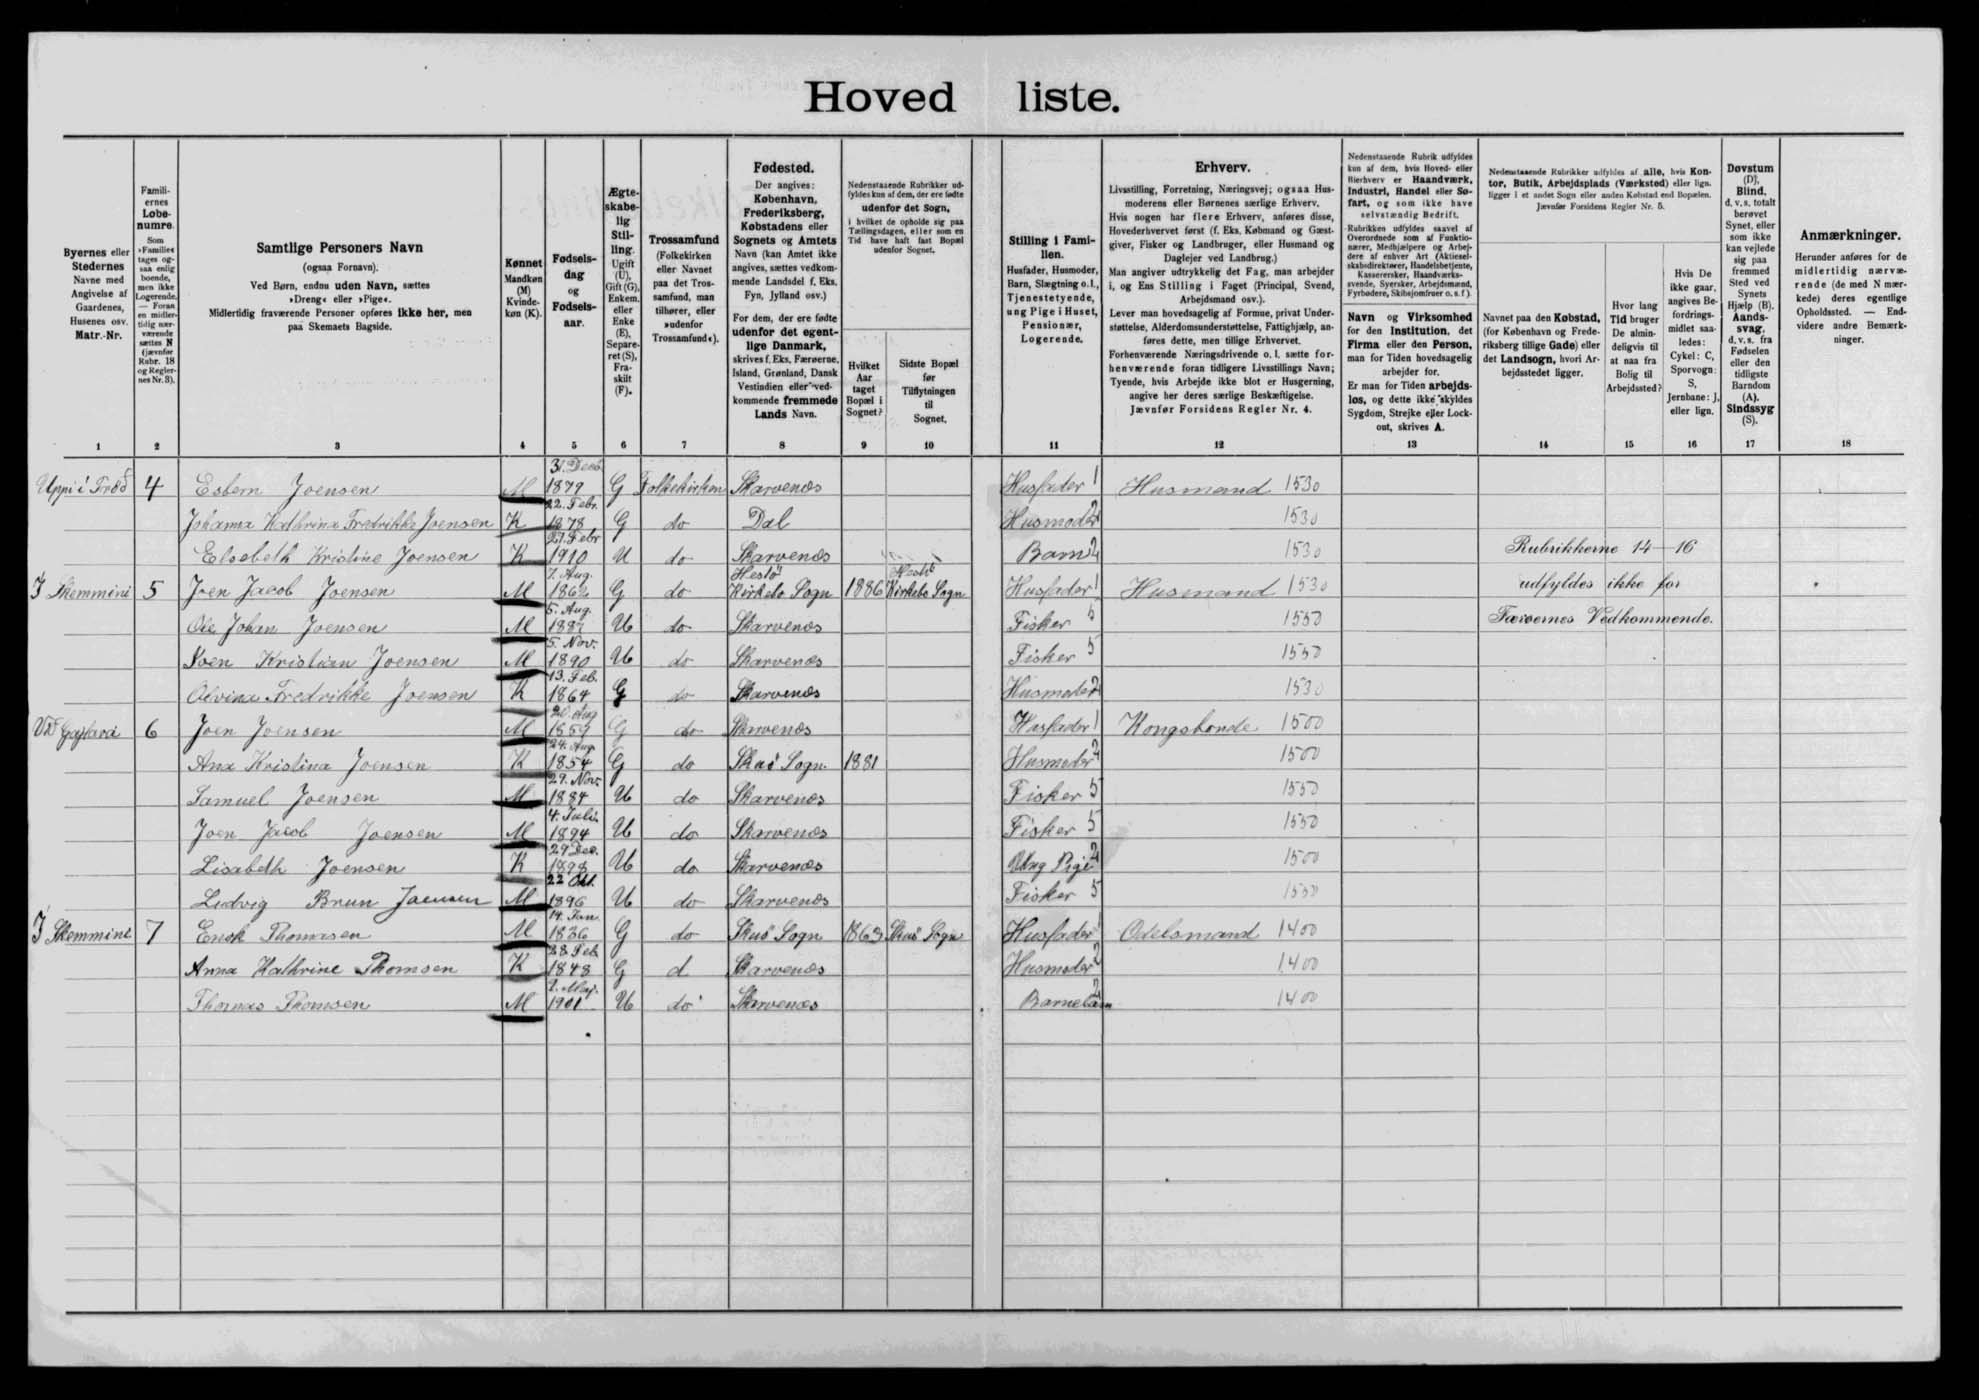 Hoved liste.
Byernes eller Stedernes Navne med Angivelse af Gaardenes, Husenes osv. Matr.-Nr.
Familiernes Løbenumre.
Som »Familie« tages ogsaa enlig boende, men ikke Logerende. — Foran en midlertidig nærværende sættes N (jævnfør Rubr. 18 og Reglernes Nr. 3).
Samtlige Personers Navn
(ogsaa Fornavn).
Ved Børn, endnu uden Navn, sættes
»Dreng« eller »Pige«.
Midlertidig fraværende Personer opføres ikke her, men
paa Skemaets Bagside.
Kønnet
Mandkøn (M) Kvindekøn (K).
Fødselsdag og Fødselsaar.
Ægteskabelig Stilling.
Ugift (U), Gift (G), Enkem. eller Enke (E), Separeret (S), Fraskilt (F).
Trossamfund
(Folkekirken eller Navnet paa det Trossamfund, man tilhører, eller »udenfor Trossamfund«).
Fødested.
Der angives: København, Frederiksberg, Købstadens eller Sognets og Amtets Navn (kan Amtet ikke angives, sættes vedkommende Landsdel f. Eks. Fyn, Jylland osv.)
For dem, der ere fødte udenfor det egentlige Danmark, skrives f. Eks. Færøerne, Island, Grønland, Dansk Vestindien eller vedkommende fremmede Lands Navn.
Nedenstaaende Rubrikker udfyldes kun af dem, der ere fødte udenfor det Sogn, i hvilket de opholde sig paa Tællingsdagen, eller som en Tid have haft fast Bopæl udenfor Sognet.
Hvilket Aar taget Bopæl i Sognet?
Sidste Bopæl før Tilflytningen til Sognet.
Stilling i Familien.
Husfader, Husmoder, Barn, Slægtning o. l., Tjenestetyende, ung Pige i Huset, Pensionær, Logerende.
Erhverv.
Livsstilling, Forretning, Næringsvej; ogsaa Husmoderens eller Børnenes særlige Erhverv.
Hvis nogen har flere Erhverv, anføres disse, Hovederhvervet først (f. Eks. Købmand og Gæstgiver, Fisker og Landbruger, eller Husmand og Daglejer ved Landbrug.)
Man angiver udtrykkelig det Fag, man arbejder i, og Ens Stilling i Faget (Principal, Svend, Arbejdsmand osv.).
Lever man hovedsagelig af Formue, privat Understøttelse, Alderdomsunderstøttelse, Fattighjælp, anføres dette, men tillige Erhvervet.
Forhenværende Næringsdrivende o. l. sætte forhenværende foran tidligere Livsstillings Navn; Tyende, hvis Arbejde ikke blot er Husgerning, angive her deres særlige Beskæftigelse.
Jævnfør Forsidens Regler Nr. 4.
Nedenstaaende Rubrik udfyldes kun af dem, hvis Hoved- eller Bierhverv er Haandværk, Industri, Handel eller Søfart, og som ikke have selvstændig Bedrift.
Rubrikken udfyldes saavel af Overordnede som af Funktionærer, Medhjælpere og Arbejdere af enhver Art (Aktieselskabsdirektører, Handelsbetjente, Kasserersker, Haandværkssvende, Syersker, Arbejdsmænd, Fyrbødere, Skibsjomfruer o. s. f.).
Navn og Virksomhed for den Institution, det Firma eller den Person, man for Tiden hovedsagelig arbejder for.
Er man for Tiden arbejdsløs, og dette ikke skyldes Sygdom, Strejke eller Lockout, skrives A.
Nedenstaaende Rubrikker udfyldes af alle, hvis Kontor, Butik, Arbejdsplads (Værksted) eller lign. ligger i et andet Sogn eller anden Købstad end Bopælen. Jævnfør Forsidens Regler Nr. 5.
Navnet paa den Købstad, (for København og Frederiksberg tillige Gade) eller det Landsogn, hvori Arbejdsstedet ligger.
Hvor lang Tid bruger De almindeligvis til at naa fra Bolig til Arbejdssted?
Hvis De ikke gaar, angives Befordringsmidlet saaledes: Cykel: C, Sporvogn: S, Jernbane: J, eller lign.
Døvstum (D), Blind, d. v. s. totalt berøvet Synet, eller som ikke kan vejlede sig paa fremmed Sted ved Synets Hjælp (B). Aandssvag, d. v. s. fra Fødselen eller den tidligste Barndom (A). Sindssyg (S).
Anmærkninger.
Herunder anføres for de midlertidig nærværende (de med N mærkede) deres egentlige Opholdssted. — Endvidere andre Bemærkninger.
1 2 3 4 5 6 7 8 9 10 11 12 13 14 15 16 17 18
Uppi i Trød 4 Esbern Joensen M 31. Decb. 1879 G Folkekirken Skarvenæs Husfader 1 Husmand 1530
Johanna Kathrina Fredrikke Joensen K 22. Febr. 1878 G do Dal Husmoder 2 1530
Elsebeth Kristine Joensen K 27. Febr 1910 U do Skarvenæs Barn 2 1530 Rubrikkerne 14—16
I Skemmini 5 Joen Jacob Joensen M 7. Aug. 1862 G do Hestø Kirkebø Sogn 1886 Hestø Kirkebø Sogn Husfader 1 Husmand 1530 udfyldes ikke for
Ole Johan Joensen M 5. Aug. 1887 U do Skarvenæs Fisker 5 1550 Færøernes Vedkommende.
Sven Kristian Joensen M 5. Nov. 1890 U do Skarvenæs Fisker 5 1550
Olvina Fredrikke Joensen K 13. Feb. 1864 G do Skarvenæs Husmoder 2 1530
6 Joen Joensen M 20. Aug 1859 G do Skarvenæs Husfader 1 Kongsbonde 1500
Ana Kristina Joensen K 24. Aug. 1854 G do Skuø Sogn. 1881 Husmoder 2 1500
Samuel Joensen M 29. Nov. 1884 U do Skarvenæs Fisker 5 1550
Joen Jacob Joensen M 4. Juli. 1894 U do Skarvenæs Fisker 5 1550
Lisabeth Joensen K 29 Dec. 1898 U do Skarvenæs Ung Pige 2 1500
Ludvig Brun Joensen M 22 Okt. 1896 U do Skarvenæs Fisker 5 1550
I Skemmini 7 Enok Thomsen M 14. Jan. 1836 G do Skuø Sogn 1863 Skuø Sogn Husfader 1 Odelsmand 1400
Anna Kathrine Thomsen K 28 Feb. 1848 G d Skarvenæs Husmoder 2 1400
Thomas Thomsen M 2. Maj. 1901 U do Skarvenæs Barnebarn 2 1400